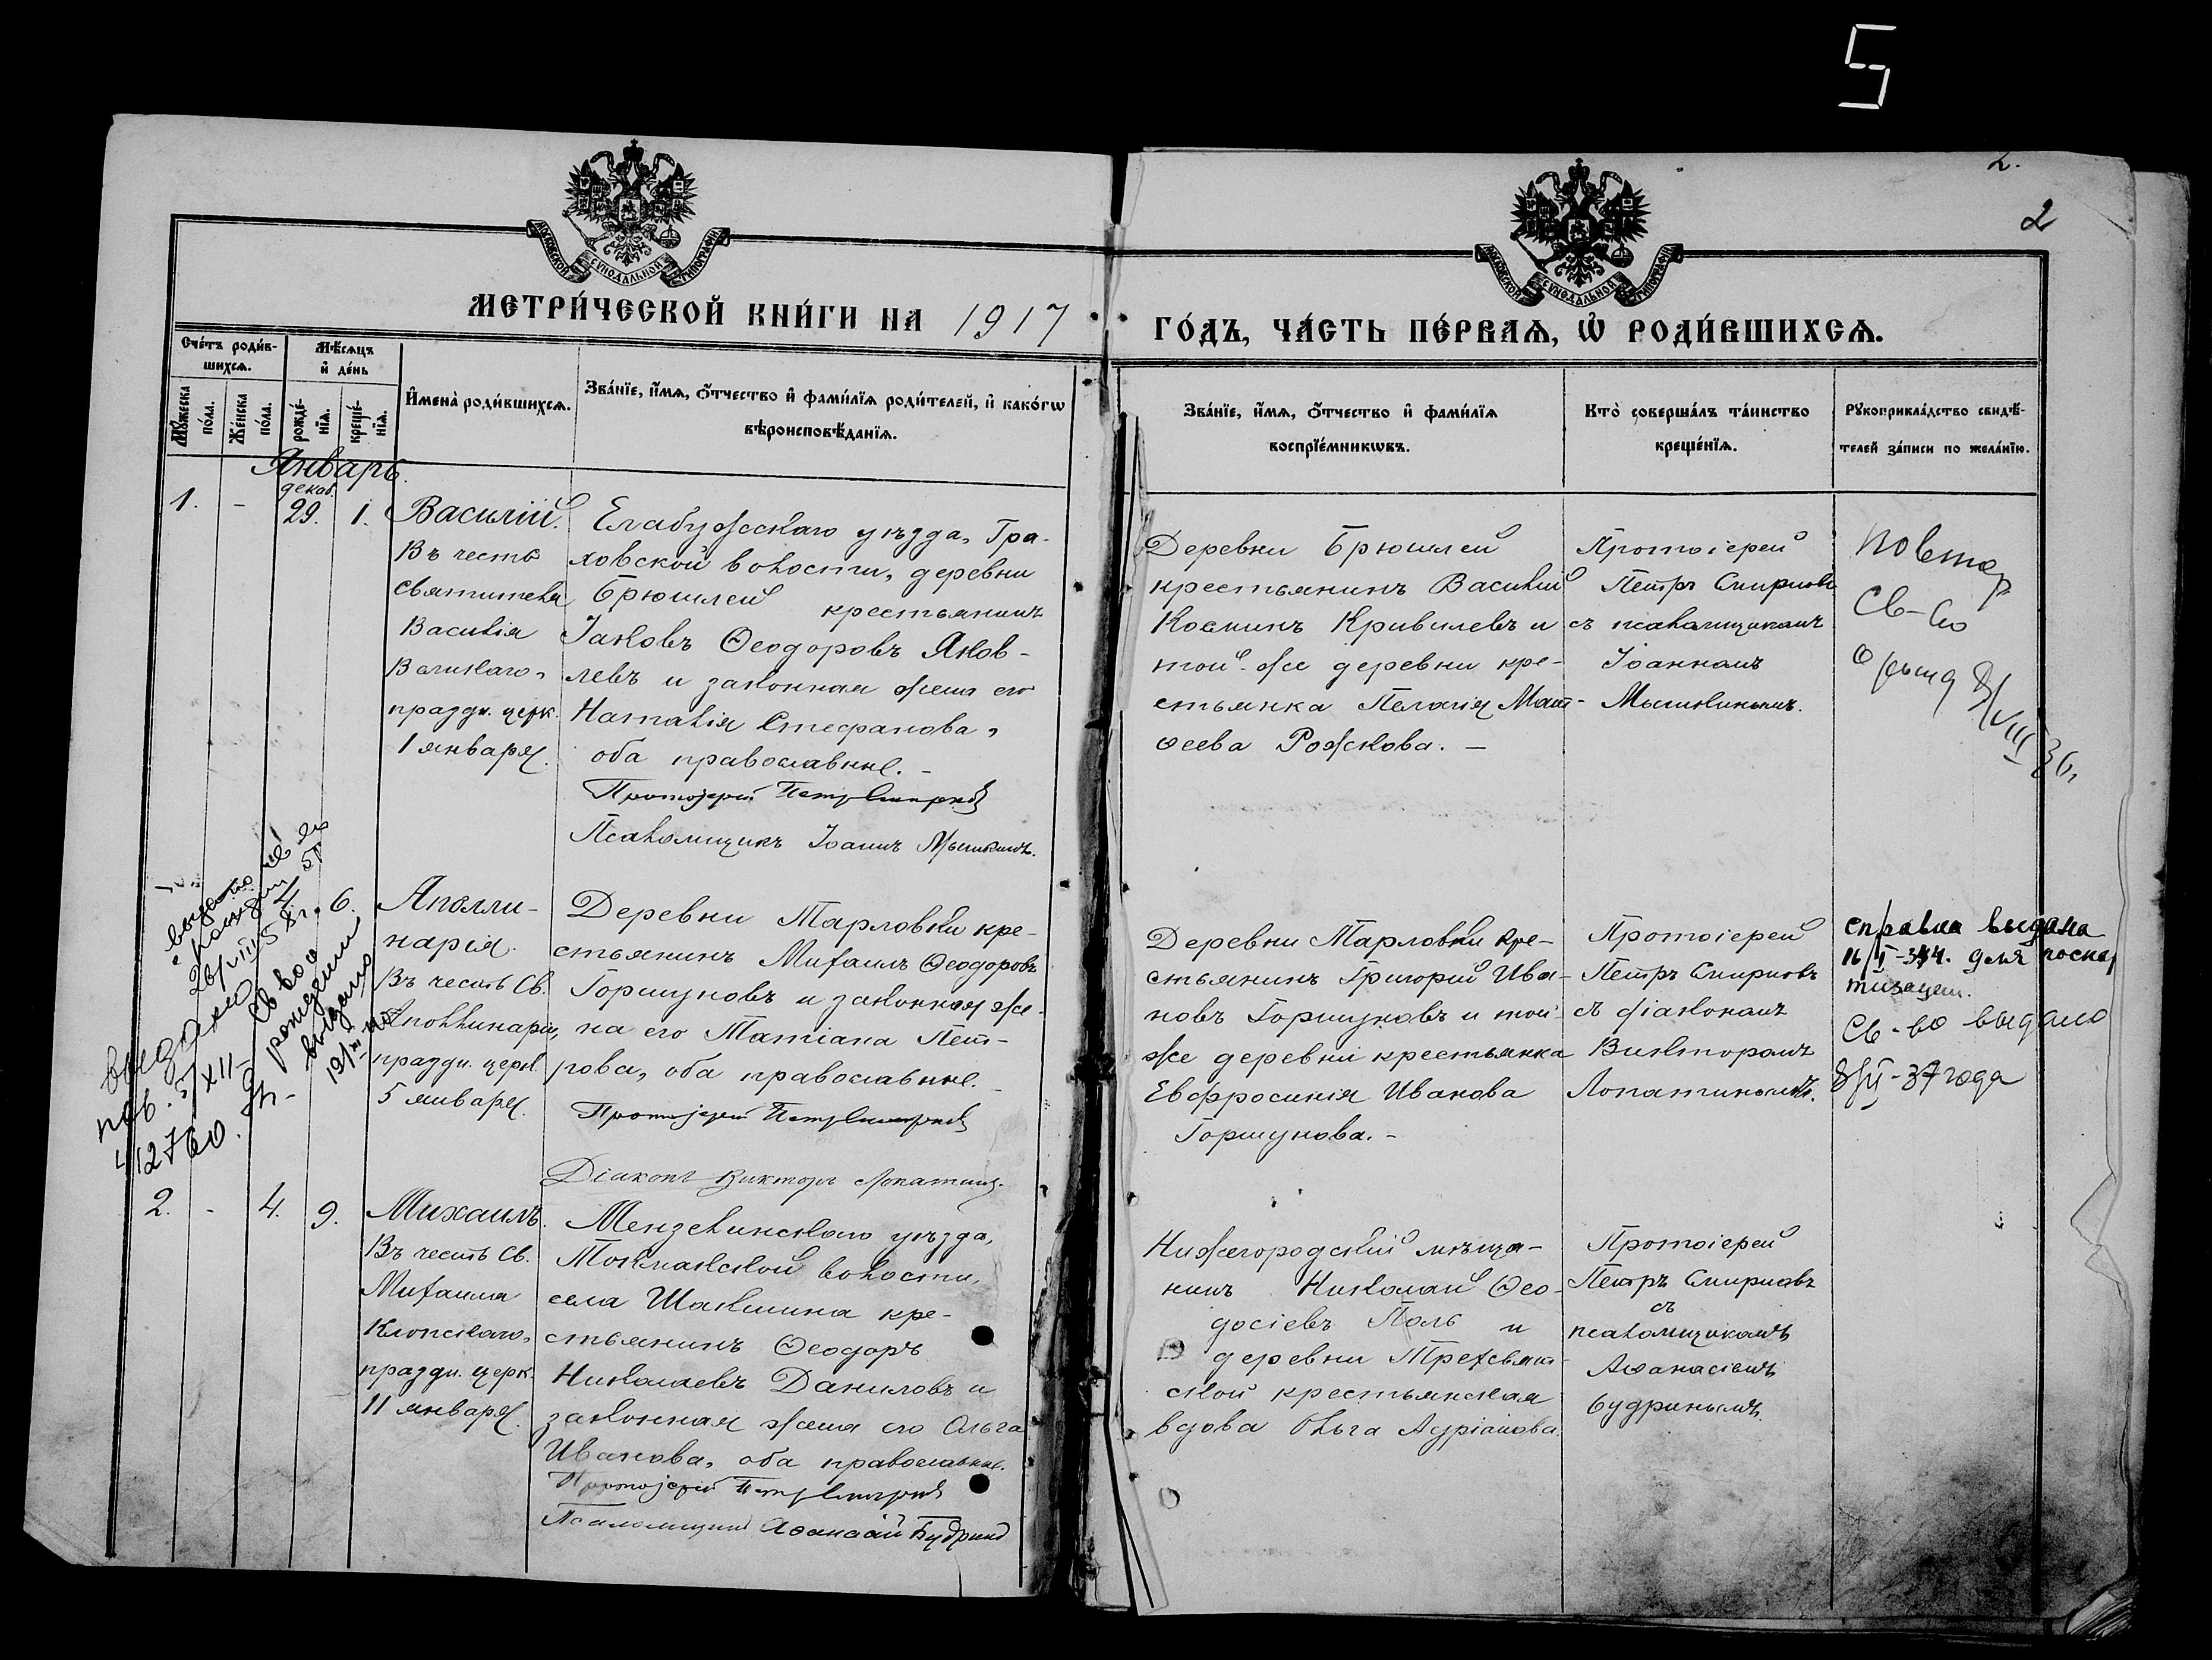 5
2.
2
МОСКОВСКОЙ СѴНОДАЛЬНОЙ ТИПОГРАФІИ
МОСКОВСКОЙ СѴНОДАЛЬНОЙ ТИПОГРАФІИ
МЕТРИ́ЧЕСКОЙ КНИ́ГИ НА 1917
ГО́ДЪ, ЧА́СТЬ ПЕ́РВАѦ, Ѡ҆ РОДИ́ВШИХСѦ.
Сче́тъ роди́в-
шихсѧ.
Мѣ́сѧцъ
и҆ де́нь
Мꙋ́жеска
по́ла.
Же́нска
по́ла.
рожде́-
нїѧ.
креще́-
нїѧ.
И҆мена̀ роди́вшихсѧ.
Зва́нїе, и҆́мѧ, ѻ҆́тчество и҆ фами́лїѧ роди́телей, и҆ како́гѡ
вѣроисповѣ́данїѧ.
Зва́нїе, и҆́мѧ, ѻ҆́тчество и҆ фами́лїѧ
воспрїе́мникѡвъ.
Кто̀ соверша́лъ та́инство
креще́нїѧ.
Рꙋкоприкла́дство свидѣ́-
телей за́писи по жела́нїю.
Январь.
декаб.
1. - 29. 1.
Василій.
Въ честь
святителя
Василія
Великаго,
праздн. церк.
1 января.
Елабужскаго уѣзда, Гра-
ховской волости, деревни
Брюшлей крестьянинъ
Іаковъ Ѳеодоровъ Яков-
левъ и законная жена его
Наталія Стефанова,
оба православные. -
Протоіерей Петръ Смирновъ
Псаломщикъ Іоаннъ Мышкинъ.
Деревни Брюшлей
крестьянинъ Василій
Косминъ Кривилевъ и
той-же деревни кре-
стьянка Пелагія Мат-
ѳеева Рожкова. -
Протоіерей
Петръ Смирновъ
съ псаломщикомъ
Іоанномъ
Мышкинымъ.
повтор
Св-во
VIII 36.
4. 6.
Аполли-
нарія.
Въ честь Св.
Аполлинаріи,
праздн. церк.
5 января.
Деревни Тарловки кре-
стьянинъ Михаилъ Ѳеодоровъ
Горшуновъ и законная же-
на его Татіана Пет-
рова, оба православные. -
Протоіерей Петръ Смирновъ
Діаконъ Викторъ Лопатинъ.
Деревни Тарловки кре-
стьянинъ Григорій Ива-
новъ Горшуновъ и той-
же деревни крестьянка
Евфросинія Иванова
Горшунова. -
Протоіерей
Петръ Смирновъ
съ діакономъ
Викторомъ
Лопатинымъ.
справка выдана
для
Св-во выдано
8/II-37 года
выдано
Св во о
рождении
выдано
2. - 4. 9.
Михаилъ.
Въ честь Св.
Михаила
Клопскаго,
праздн. церк.
11 января.
Мензелинскаго уѣзда,
Токмакской волости,
села Шакшина кре-
стьянинъ Ѳеодоръ
Николаевъ Даниловъ и
законная жена его Ольга
Иванова, оба православные.
Протоіерей Петръ Смирновъ
Псаломщикъ Аѳанасій Будринъ
Нижегородскій мѣща-
нинъ Николай Ѳео-
досіевъ Поль и
деревни Трехсвят-
ской крестьянская
вдова Ольга Адріанова.
Протоіерей
Петръ Смирновъ
съ
псаломщикомъ
Аѳанасіемъ
Будринымъ.